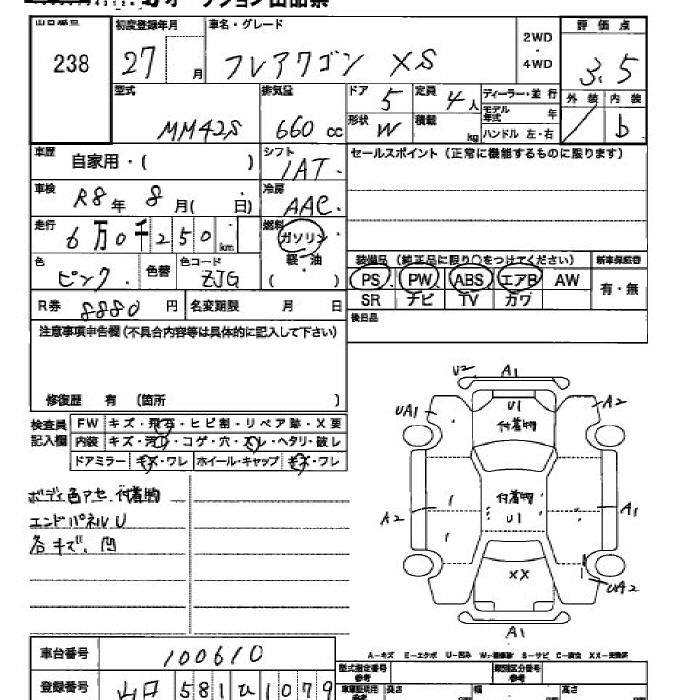 オークション出品票
出品番号
238
初度登録年月
27 月
車名・グレード
フレアワゴン XS
2WD
・
4WD
評価点
3.5
型式
MM42S
排気量
660 cc
ドア 5
定員 4人
形状 W
積載 kg
ディーラー・並行
モデル年式 年
ハンドル 左・右
外装
内装
b
車歴
自家用・( )
シフト
IAT
セールスポイント (正常に機能するものに限ります)
車検
R8年 8月( 日)
冷房
AAC
走行
6万0千250km
燃料
ガソリン
軽・油
( )
色
ピンク
色替
色コード
ZJG
装備品 (純正品に限り○をつけてください)
新車保証書
PS PW ABS エアB AW
SR ナビ TV カワ
有・無
R券 8880円
名変期限 月 日
後日品
注意事項申告欄(不具合内容等は具体的に記入して下さい)
修復歴 有 (箇所 )
検査員
記入欄
FW キズ・飛石・ヒビ割・リペア跡・X要
内装 キズ・汚れ・コゲ・穴・スレ・ヘタリ・破レ
ドアミラー キズ・ワレ ホイール・キャップ キズ・ワレ
ボディ色アセ、付着物
エンドパネルU
各キズ、凹
U2 A1
UA1 U1 A2
付着物
付着物
A2 U1 A1
XX
UA2
A1
A-キズ E-エクボ U-凹み W-補修跡 S-サビ C-腐食 XX-交換済
車台番号 100610
登録番号 山口 581 ひ 1079
型式指定番号
参考
類別区分番号
参考
車庫証明用
参考
長さ
幅
高さ